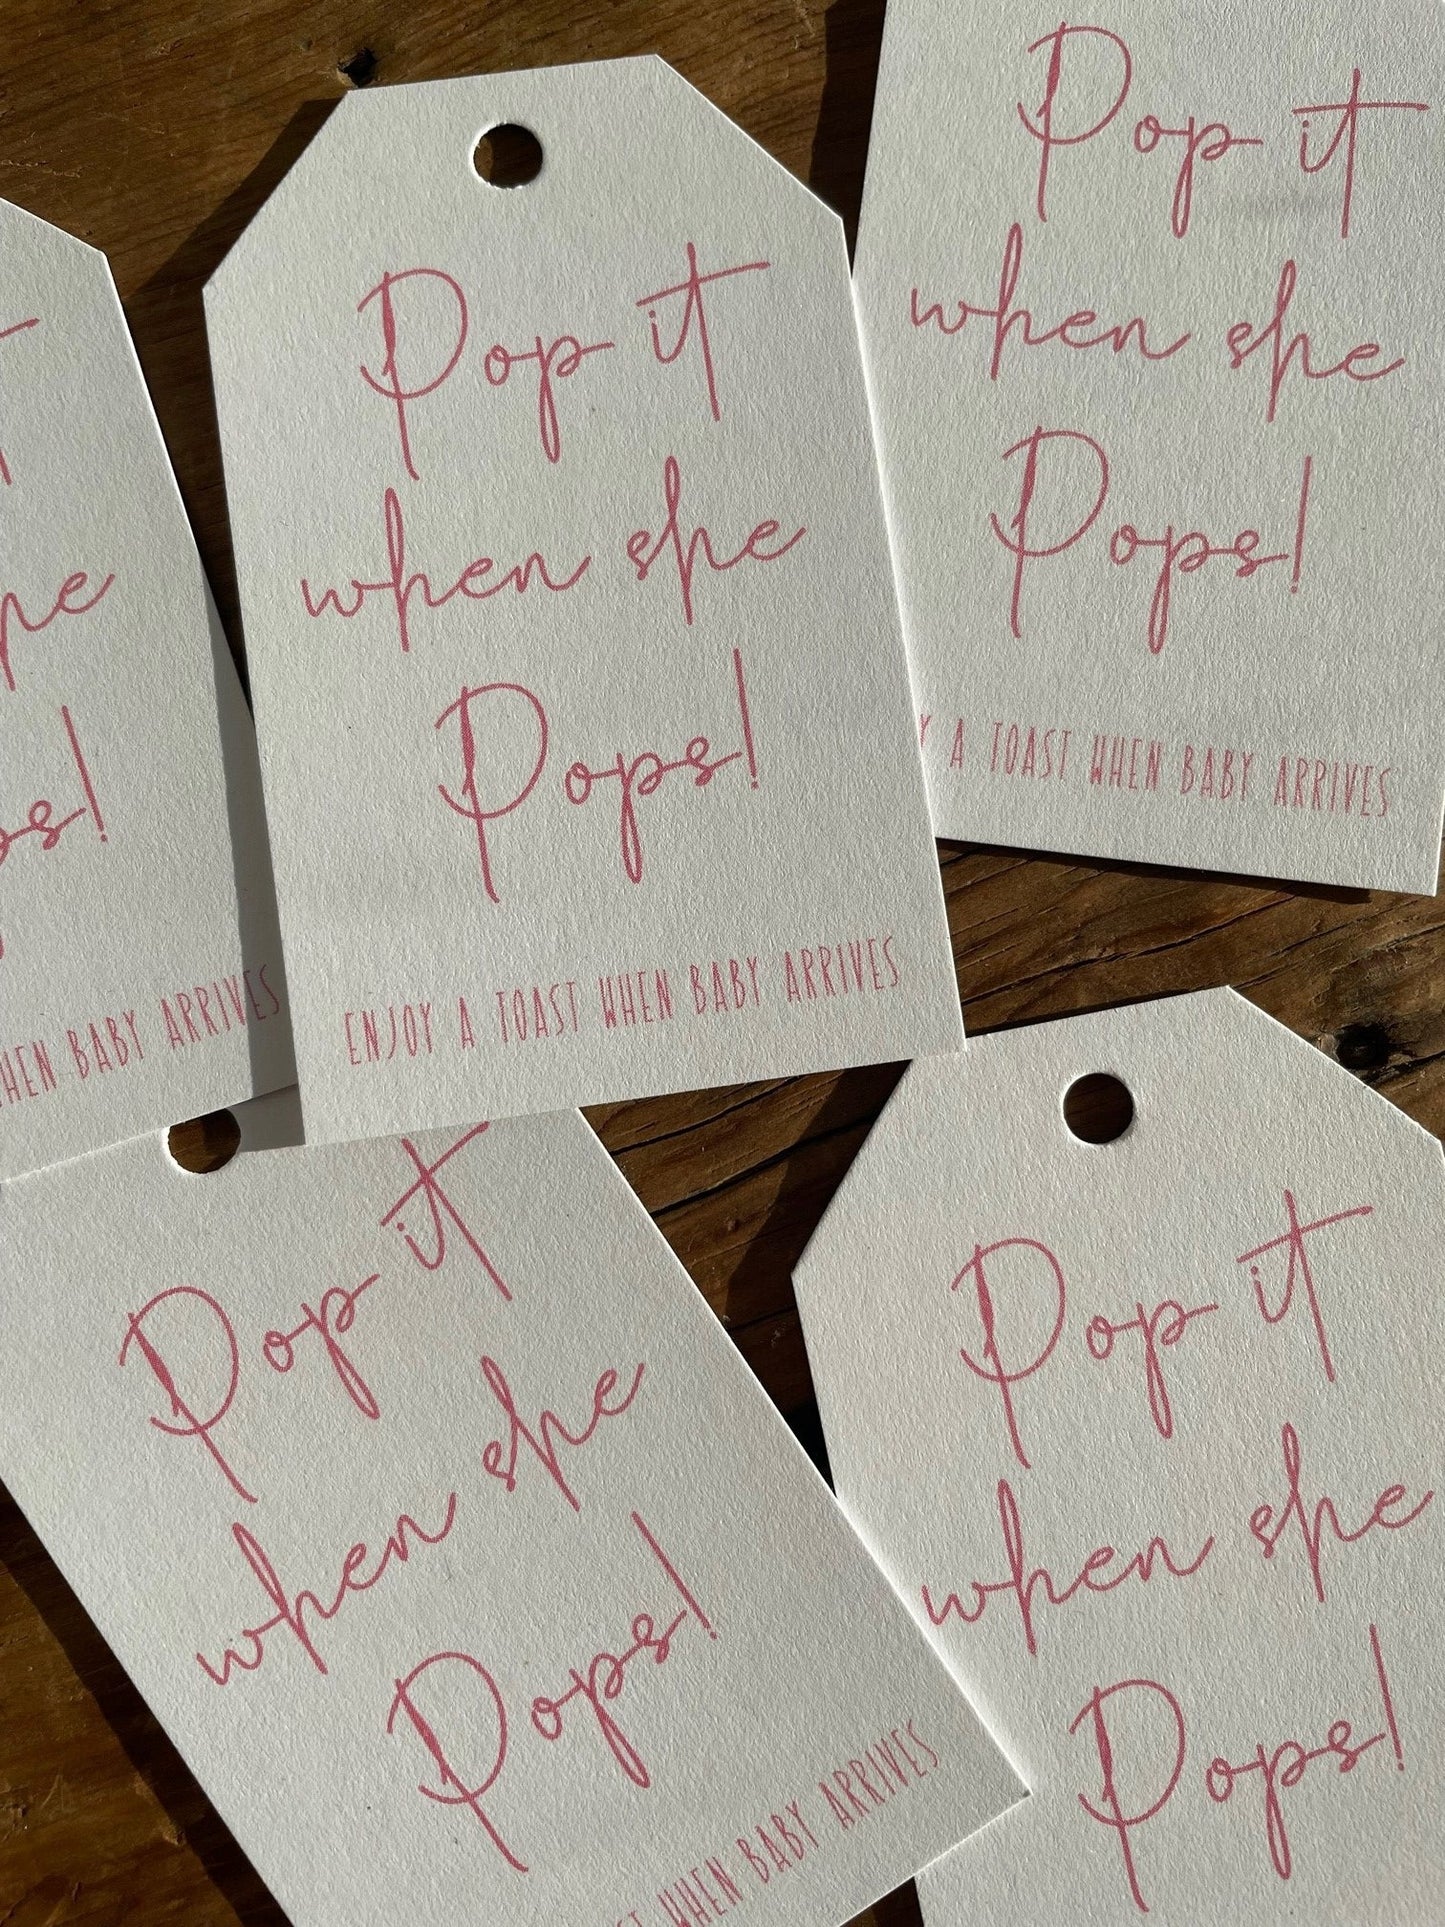 Pop it
when she
Pops!
ENJOY A TOAST WHEN BABY ARRIVES
Pop it
when she
Pops!
A TOAST WHEN BABY ARRIVES
BABY ARRIVES
Pop it
when she
Pops!
WHEN BABY ARRIVES
Pop it
when she
Pops!